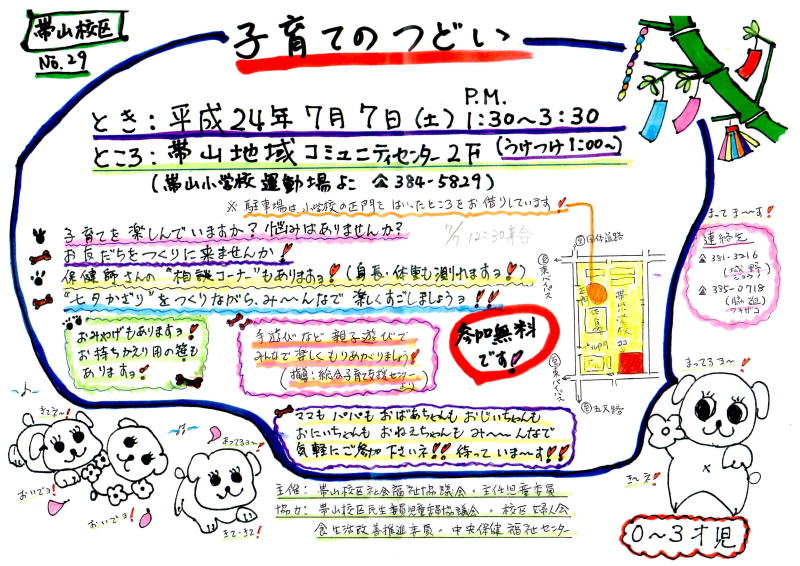 帯山校区
No.29
子育てのつどい
とき：平成24年7月7日(土) P.M. 1:30〜3:30
ところ：帯山地域コミュニティセンター2F (うけつけ1:00〜)
(帯山小学校運動場よこ ☎384-5829)
※ 駐車場は小学校の正門をはいったところをお借りしています!
子育てを楽しんでいますか？悩みはありませんか？
7/7 12:30集合
お友だちをつくりに来ませんか!
保健師さんの"相談コーナー"もありますョ!(身長・体重も測れますョ!)
"七夕かざり"をつくりながら、み〜んなで楽しくすごしましょうョ!!
おみやげもありますョ!
お持ちかえり用の笹も
ありますョ!
手遊びなど親子遊びで
みんなで楽しくもりあがりましょう!
(指導：総合子育て支援センター より)
参加無料
です!
ママも パパも おばあちゃんも おじいちゃんも
おにいちゃんも おねえちゃんも み〜〜んなで
気軽にご参加下さいネ!! 待っていま〜す!!
主催：帯山校区社会福祉協議会・主任児童委員
協力：帯山校区民生委員児童委員協議会・校区婦人会
食生活改善推進委員・中央保健福祉センター
まってま〜す!
連絡先
☎381-3216
☎385-0718
至国体道路
至東バイパス
正門
体育館
至東バイパス
まってるヨ〜!
きてネ!
おいでョ!
おいでョ!
まってるョ!
きて・きて!
き〜て!
0〜3才児